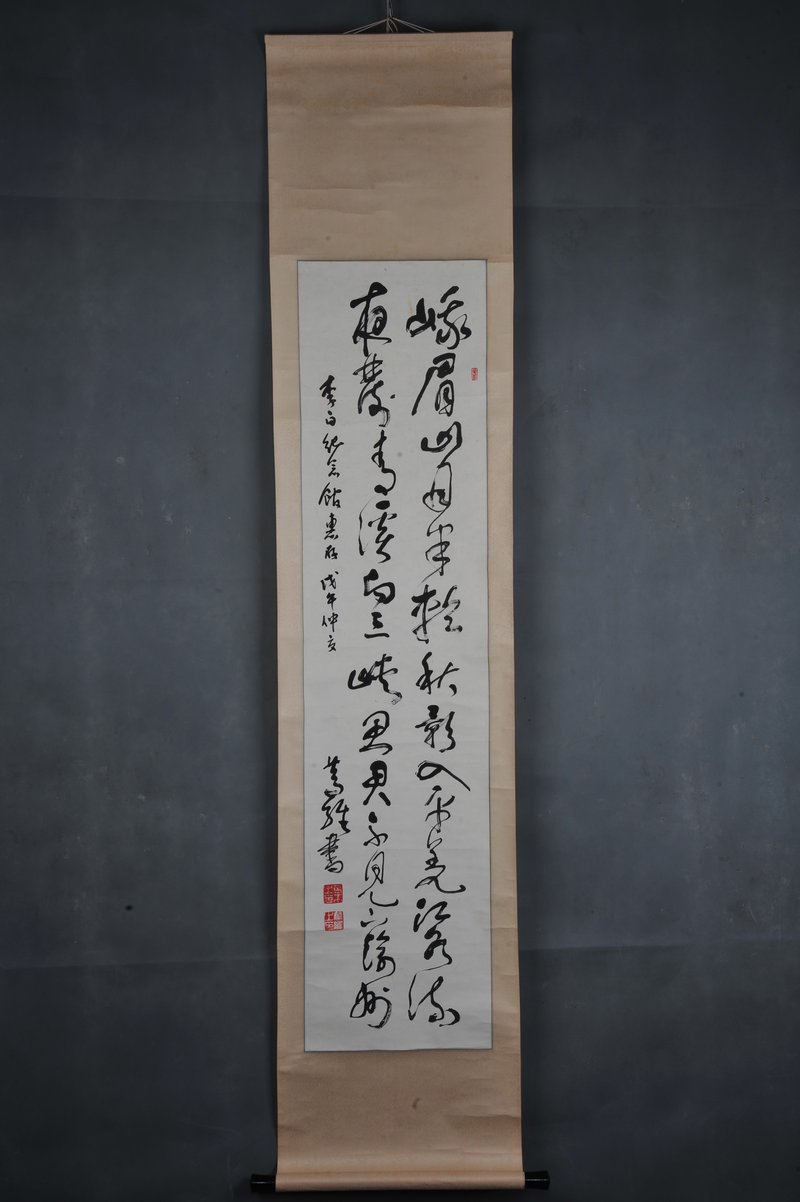 峨眉山月半輪秋影入平羌江水流
夜發清溪向三峽思君不見下渝州
李白紀念館惠存 戊午仲夏
維書